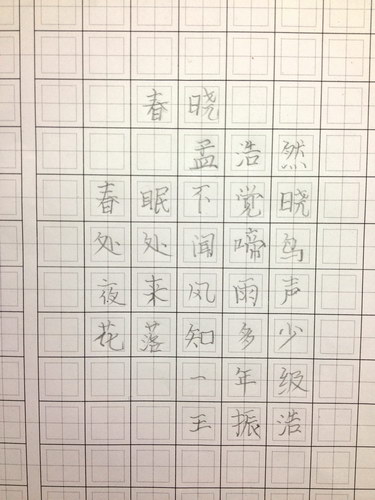 春晓
孟浩然
春眠不觉晓
处处闻啼鸟
夜来风雨声
花落知多少
一年级
王振浩